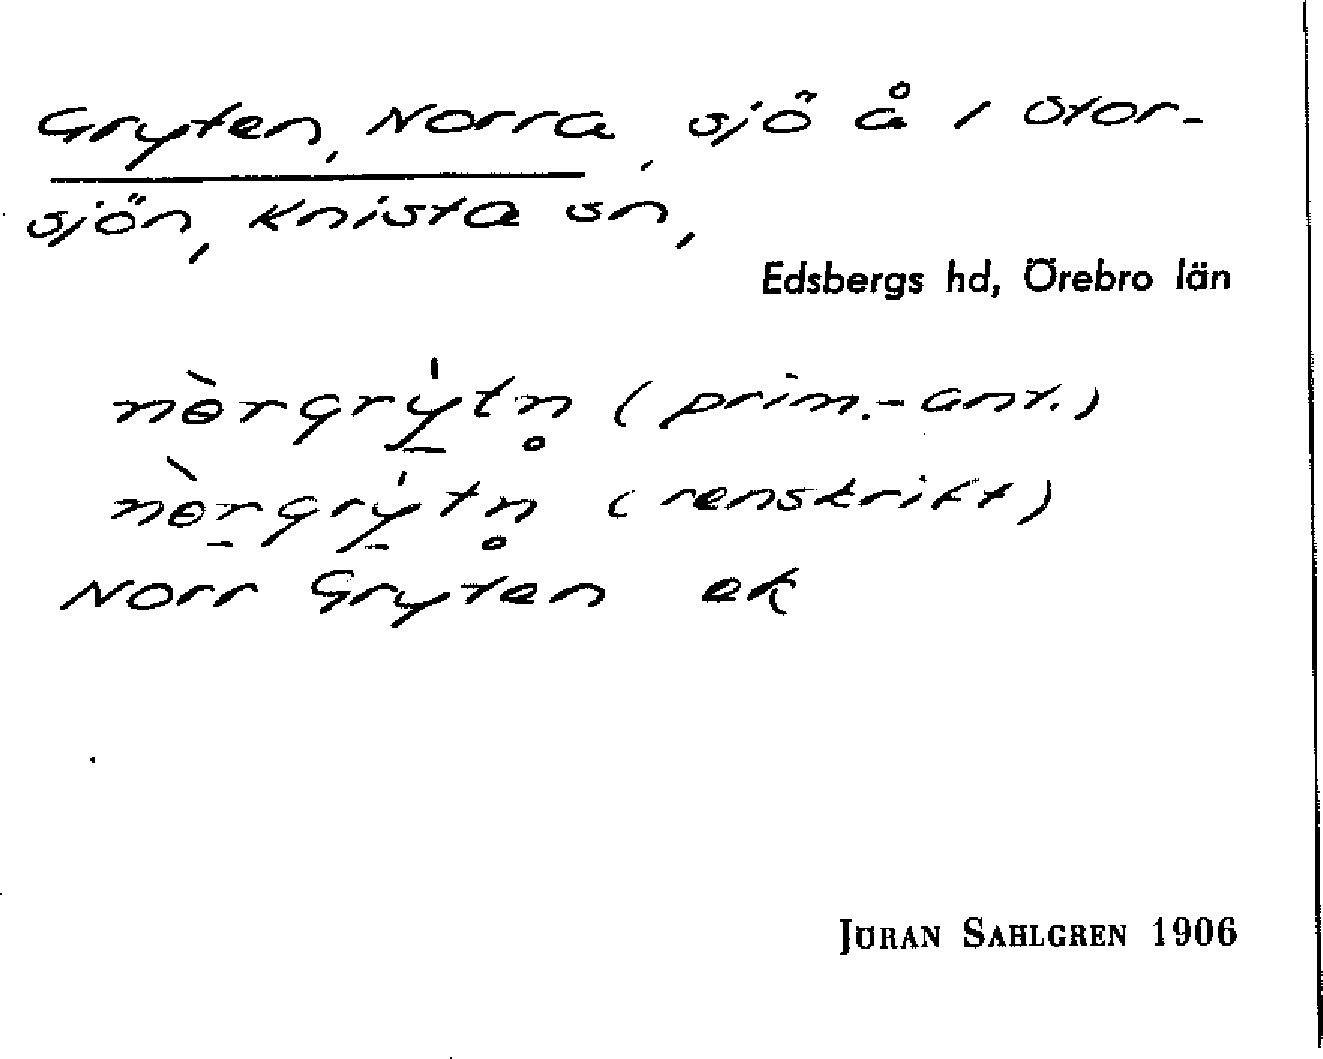 Gryten, Norra, sjö å i Stor-
sjön, Knista sn,
Edsbergs hd, Örebro län
nòrgrýtn̥ (prim.-ant.)
nòrgrýtn̥ (renskrift)
Norr Gryten ek
JÖRAN SAHLGREN 1906